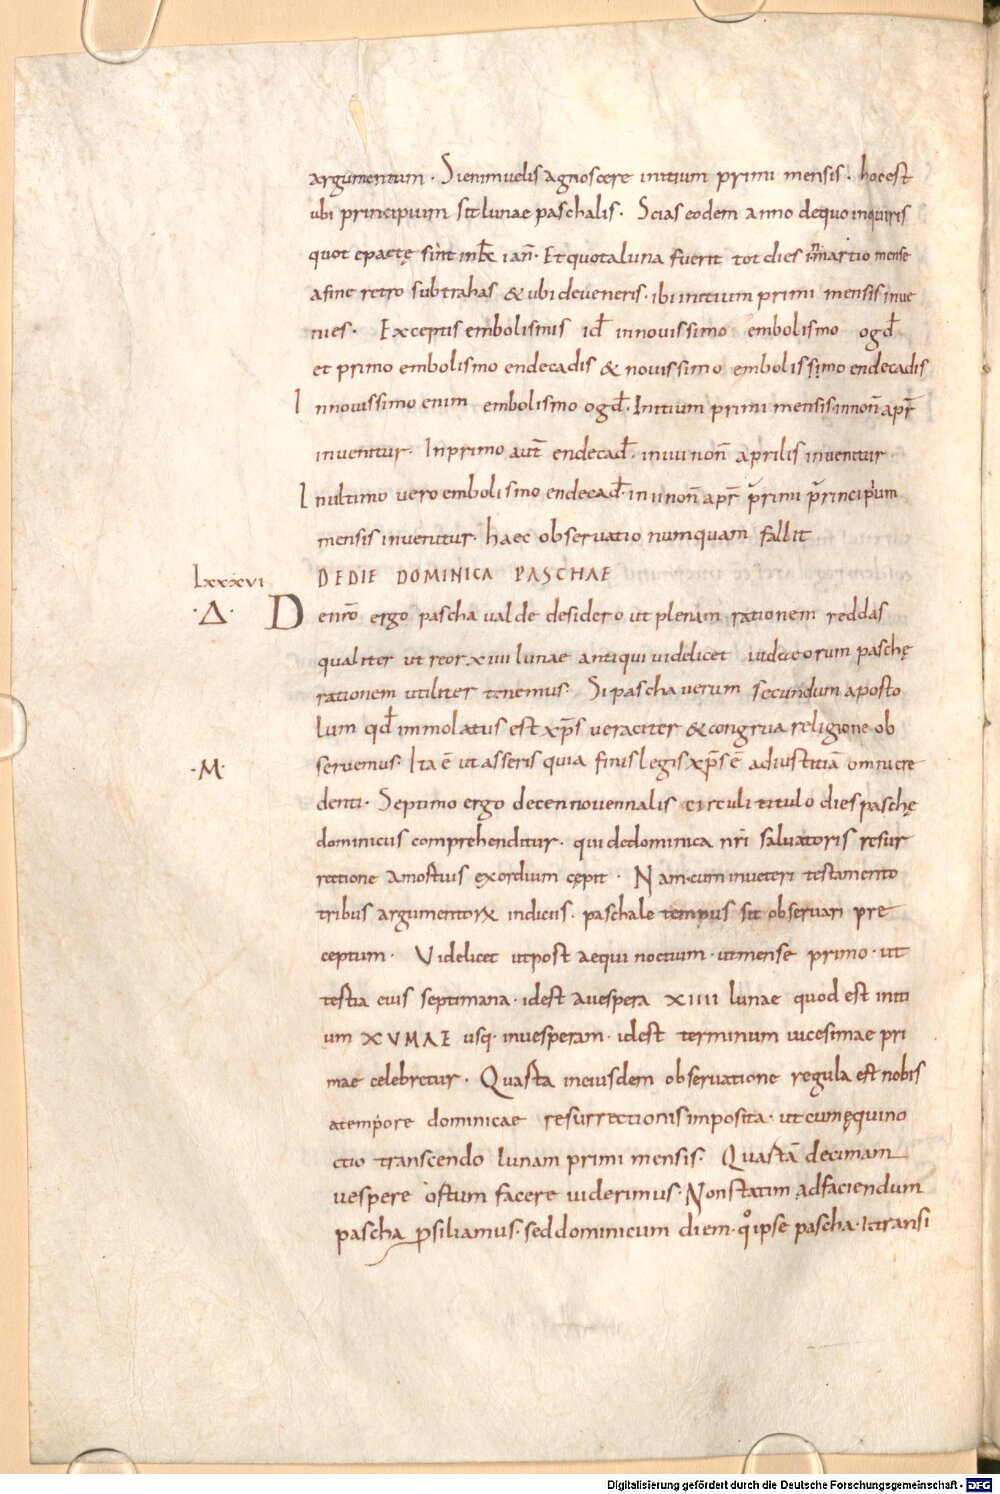 argumentum · Si enim uelis agnoscere initium primi mensis · hoc est
ubi principium sit lunae paschalis · Scias eodem anno de quo inquiris
quot epactę sint in kł ian̄ · Et quota luna fuerit tot dies martio mense
a fine retro subtrahas & ubi deueneris · ibi initium primi mensis inue
nies · Exceptis embolismis id̄ in nouissimo embolismo ogd̄
et primo embolismo endecadis & nouissimo embolissimo endecadis
In nouissimo enim embolismo ogd̄ · Initium primi mensis in non̄ apr̄
inuenitur · In primo aut̄ endecad̄ · in iiii non̄ aprilis inuenitur ·
In ultimo uero embolismo endecad̄ · in ii non̄ apr̄ primi principium
mensis inuenitur · haec obseruatio numquam fallit
Lxxxvi DE DIE DOMINICA PASCHAE
·Δ· De nr̄o ergo pascha ualde desidero ut plenam rationem reddas
qualiter ut reor xiiii lunae antiqui uidelicet iudaeorum paschę
rationem utiliter tenemus · Si pascha uerum secundum aposto
lum qd̄ immolatus est xp̄s ueraciter & congrua religione ob
·M· seruemus · Ita ē ut asseris quia finis legis xp̄s ē ad iustitiā omni cre
denti · Septimo ergo decennouennalis circuli titulo dies paschę
dominicus comprehenditur · qui de dominica nr̄i saluatoris resur
rectione a mortuis ęxordium cępit · Nam cum in ueteri testamento
tribus argumentorꝝ indiciis · paschale tempus sit obseruari pre
ceptum · Videlicet ut post aequinoctium · ut mense primo · ut
tertia eius septimana · id est a uespera xiiii lunae quod est initi
um XVMAE usq · in uesperam · id est terminum uicesimae pri
mae celebretur · Quarta in eiusdem obseruatione regula est nobis
a tempore dominicae resurrectionis imposita · ut cum ęquino
ctio transcendo lunam primi mensis · Quartā decimam
uespere ortum facere uiderimus · Non statim ad faciendum
pascha ꝓsiliamus · sed dominicum diem · qͦ ipse pascha · i transi